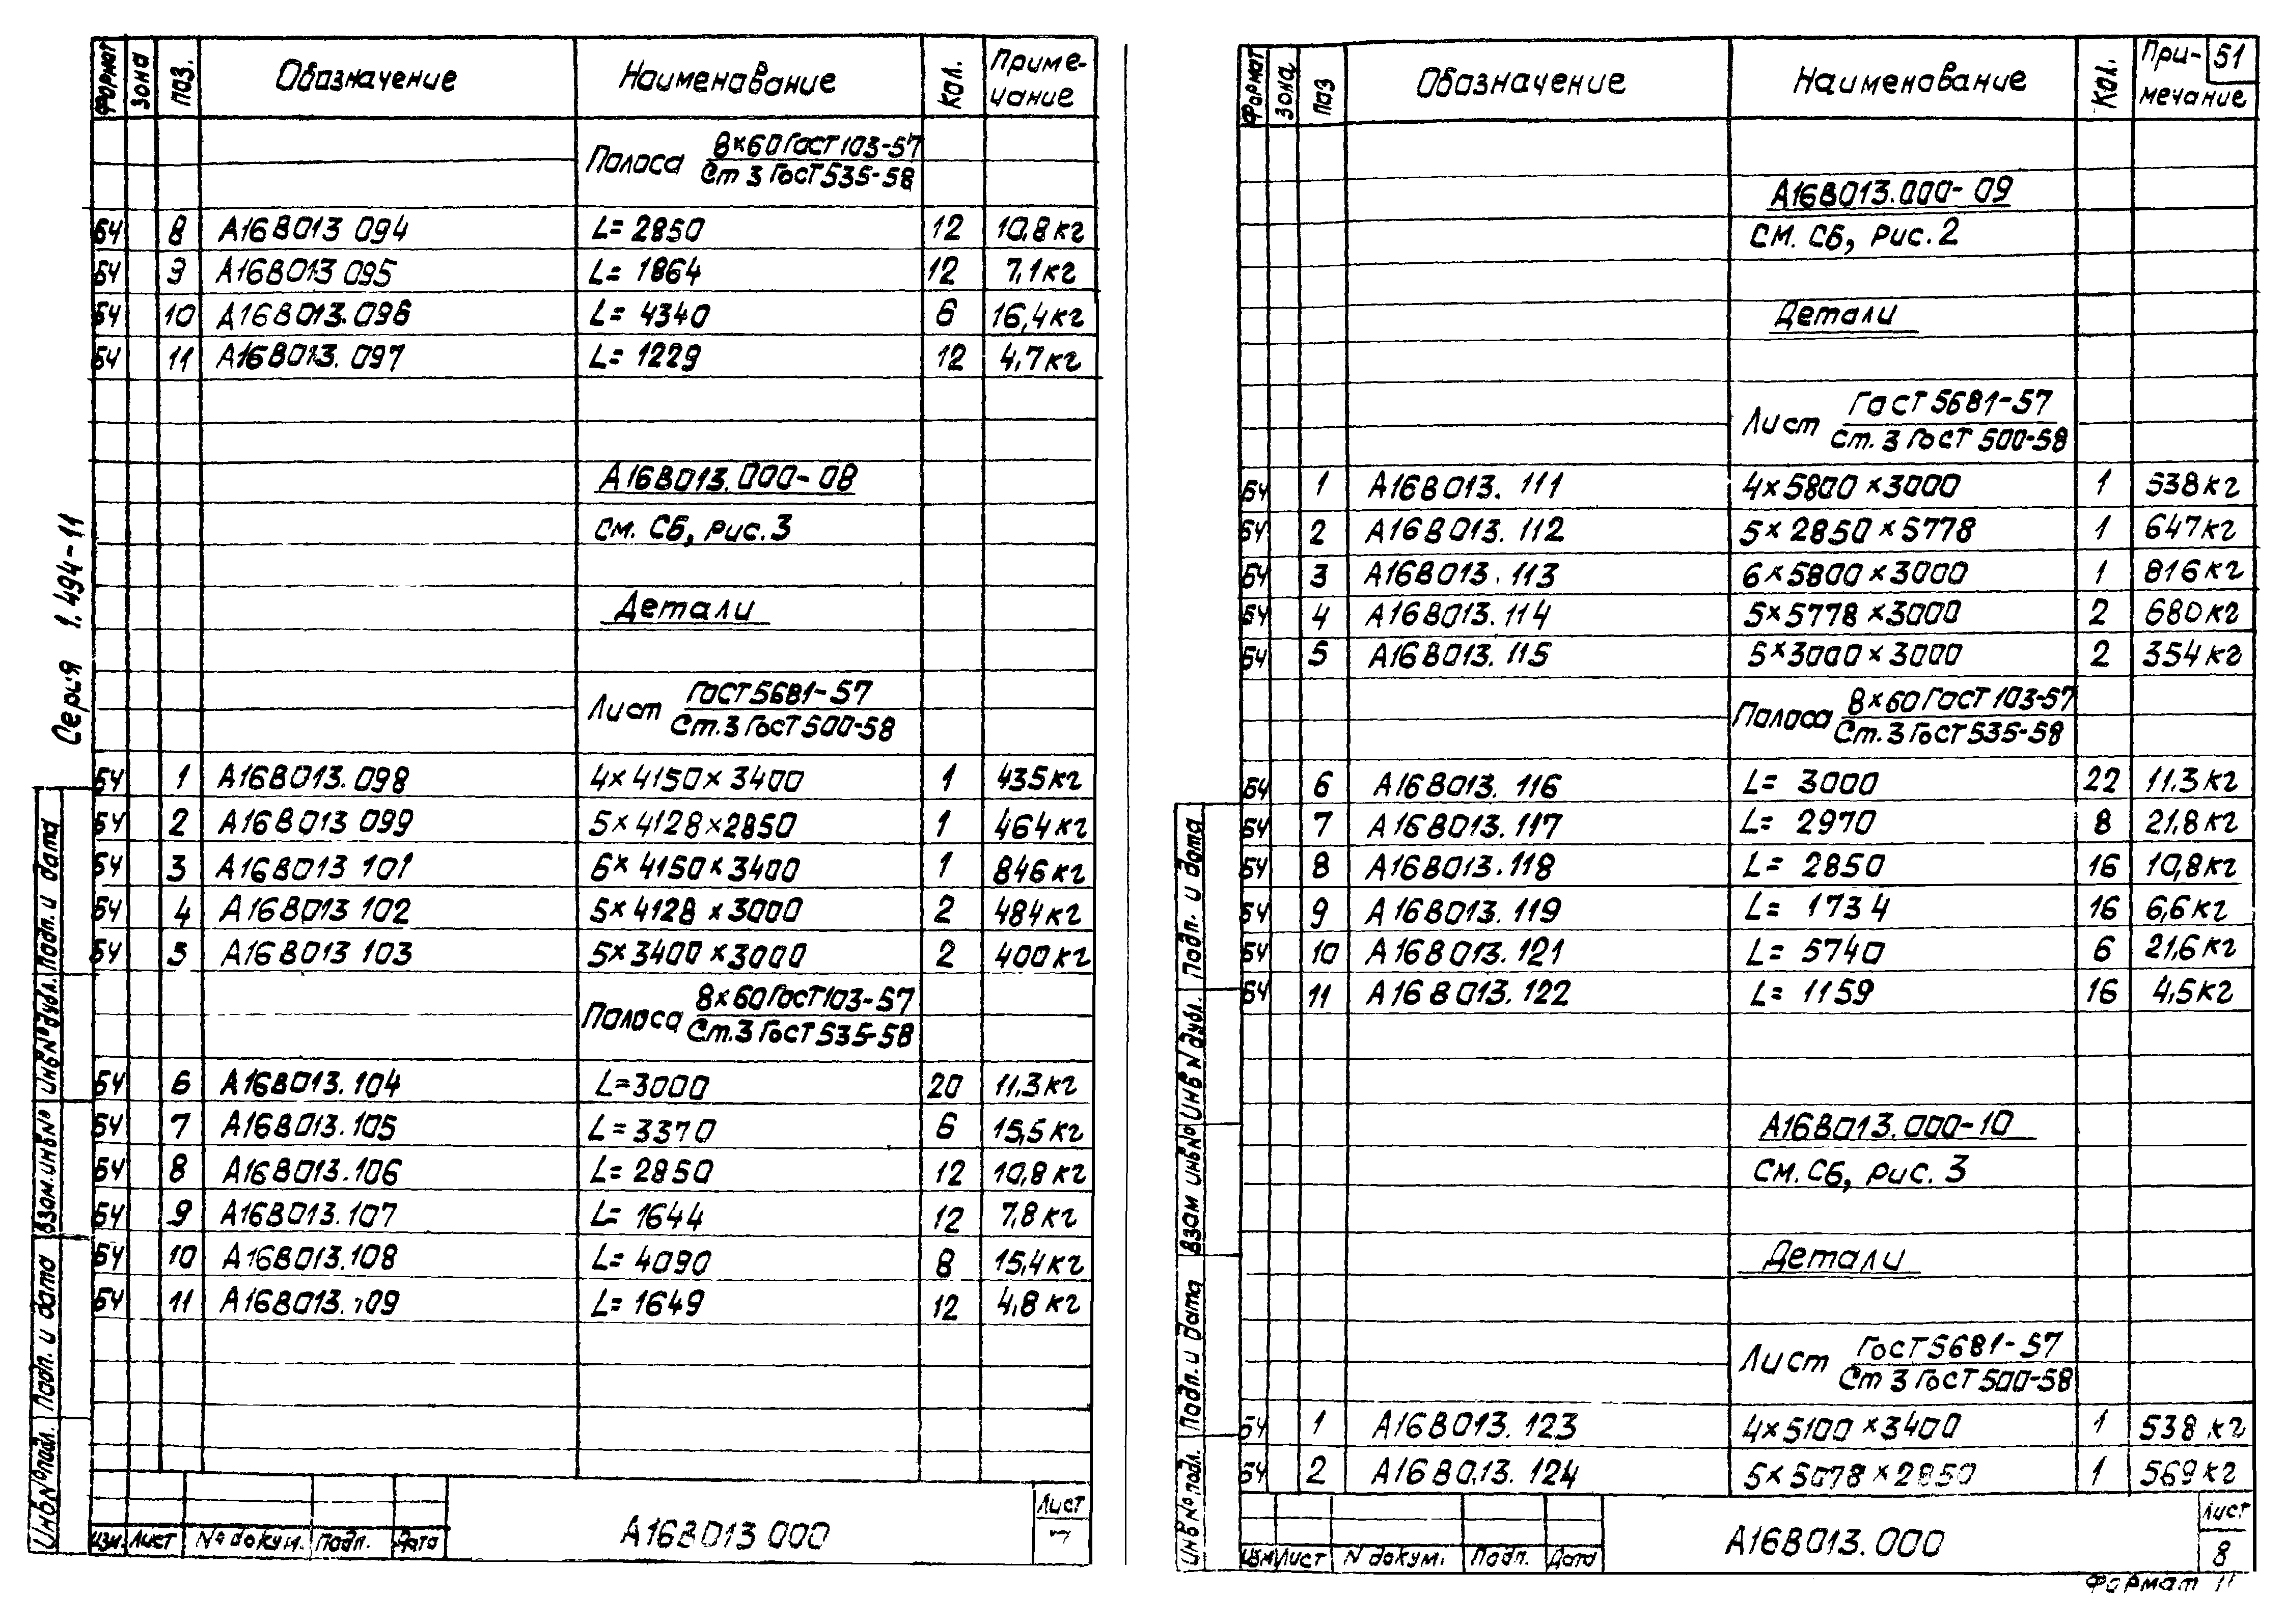 Формат Зона Поз. Обозначение Наименование Кол. Приме-
чание
Полоса 8×60 ГОСТ 103-57
Ст 3 ГОСТ 535-58
БЧ 8 А16В013 094 L= 2850 12 10,8 кг
БЧ 9 А16В013 095 L= 1864 12 7,1 кг
БЧ 10 А16В013.096 L= 4340 6 16,4 кг
БЧ 11 А16В013. 097 L= 1229 12 4,7 кг
А16В013.000-08
см. СБ, рис. 3
Детали
Лист ГОСТ 5681-57
Ст. 3 ГОСТ 500-58
БЧ 1 А16В013. 098 4×4150×3400 1 435 кг
БЧ 2 А16В013 099 5×4128×2850 1 464 кг
БЧ 3 А16В013 101 6×4150×3400 1 846 кг
БЧ 4 А16В013 102 5×4128×3000 2 484 кг
БЧ 5 А16В013 103 5×3400×3000 2 400 кг
Полоса 8×60 ГОСТ 103-57
Ст. 3 ГОСТ 535-58
БЧ 6 А16В013. 104 L=3000 20 11.3 кг
БЧ 7 А16В013.105 L=3370 6 15,5 кг
БЧ 8 А16В013.106 L= 2850 12 10,8 кг
БЧ 9 А16В013.107 L= 1644 12 7,8 кг
БЧ 10 А16В013.108 L= 4090 8 15,4 кг
БЧ 11 А16В013.109 L= 1649 12 4,8 кг
Серия 1.494-11
Инв № подл. Подп. и дата Взам. инв № Инв № дубл. Подп. и дата
Изм. Лист № докум. Подп. Дата
А16В013 000
Лист
7
Формат Зона Поз Обозначение Наименование Кол. При-
мечание
51
А16В013.000-09
см. СБ, рис. 2
Детали
Лист ГОСТ 5681-57
Ст. 3 ГОСТ 500-58
БЧ 1 А16В013. 111 4×5800×3000 1 538 кг
БЧ 2 А16В013. 112 5×2850×5778 1 647 кг
БЧ 3 А16В013. 113 6×5800×3000 1 816 кг
БЧ 4 А16В013. 114 5×5778×3000 2 680 кг
БЧ 5 А16В013. 115 5×3000×3000 2 354 кг
Полоса 8×60 ГОСТ 103-57
Ст. 3 ГОСТ 535-58
БЧ 6 А16В013. 116 L= 3000 22 11.3 кг
БЧ 7 А16В013. 117 L= 2970 8 21,8 кг
БЧ 8 А16В013.118 L= 2850 16 10,8 кг
БЧ 9 А16В013. 119 L= 1734 16 6,6 кг
БЧ 10 А16В013. 121 L= 5740 6 21,6 кг
БЧ 11 А16В013. 122 L= 1159 16 4,5 кг
А16В013.000-10
См. СБ, рис. 3
Детали
Лист ГОСТ 5681-57
Ст 3 ГОСТ 500-58
БЧ 1 А16В013. 123 4×5100×3400 1 538 кг
БЧ 2 А16В013. 124 5×5078×2850 1 569 кг
Инв № подл. Подп. и дата Взам инв № Инв N дубл. Подп. и дата
Изм Лист N докум. Подп. Дата
А16В013.000
Лист
8
Формат 11